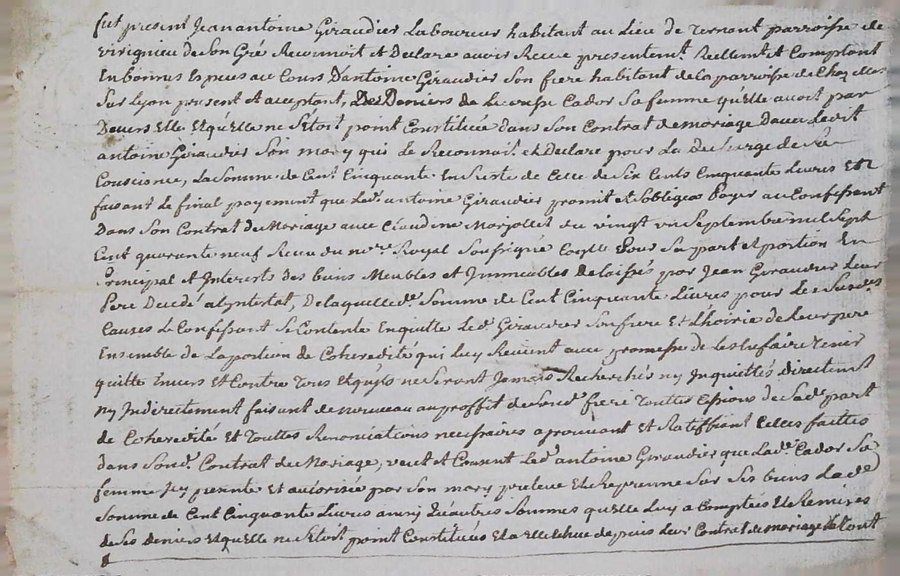 fut present Jeanantoine Giraudier Laboureur habitant au Lieu de Ternant parroisse de
virignieu de Son Gré Reconnoit et Declare avoir Receu presentemt. Reellemt. et Comptant
En bonnes Especes au Cours D'antoine Giraudier Son frere habitant de la parroisse de Chazelles
Sur Lyon present et acceptant, Des Deniers de Cador Sa femme qu'elle avoit par
Devers Elle et qu'elle ne S'etoit point Constituée dans Son Contrat de mariage Davec Ledit
antoine Giraudier Son mary qui Le Reconnoit. et Declare pour La Decharge de Sa
Conscience, La Somme de Cent Cinquante En Reste de Celle de Six Cents Cinquante Livres Et
faisant Le final payement que Led. antoine Giraudier promit et s'obligea Payer au Confessant
Dans Son Contrat de Mariage avec Claudine Marjollet du vingt Septembre mil Sept
Cent quarante neuf Receu du nre. Royal Soussigné Pour Sa part et portion En
Principal et Interests des biens Meubles et Immeubles delaissés par Jean Giraudier Leur
Pere Decedé abintestat, De laquelle de. Somme de Cent Cinquante Livres pour Les Susdes.
Causes Le Confessant Se Contente En quitte Led. Giraudier Son frere Et L'hoirie de Leur pere
Ensemble de La portion de Coheredité qui Luy Revient avec promesse de Les En faire Tenir
quitte Envers et Contre Tous et qu'ils ne Seront Jamais Recherchés ny Inquiettés directemt.
Ny Indirectement faisant de nouveau au proffit de Sond. frere Touttes Cessions de Sade. part
de Coheredité Et Touttes Renonciations necessaires aprouvant Et Ratiffiant Celles faittes
dans Sond. Contrat de Mariage, veut et Consent Led. antoine Giraudier que Lade. Cador Sa
femme Icy presente Et autorisée par Son mary preleve Et Reprenne Sur Ses biens Lade.
Somme de Cent Cinquante Livres ainsy Qu'autres Sommes qu'elle Luy a Comptées Et Remises
de Ses Deniers Et qu'elle ne S'etoit point Constituées Et a Elle depuis Leur Contrat de mariage Le Tout